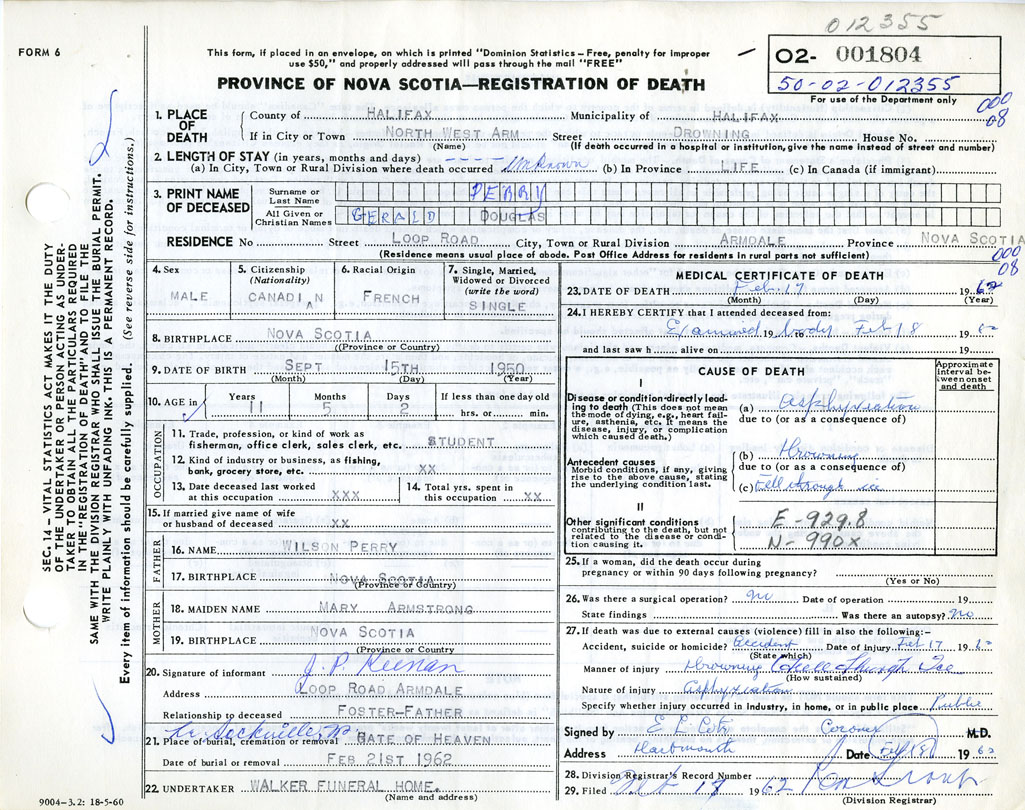 012355
FORM 6
This form, if placed in an envelope, on which is printed "Dominion Statistics – Free, penalty for improper
use $50," and properly addressed will pass through the mail "FREE"
02- 001804
50-02-012355
For use of the Department only
PROVINCE OF NOVA SCOTIA—REGISTRATION OF DEATH
000
08
1. PLACE OF DEATH
County of HALIFAX Municipality of HALIFAX
If in City or Town NORTH WEST ARM Street DROWNING House No.
(Name) (If death occurred in a hospital or institution, give the name instead of street and number)
2. LENGTH OF STAY (in years, months and days)
(a) In City, Town or Rural Division where death occurred Unknown (b) In Province LIFE (c) In Canada (if immigrant)
3. PRINT NAME OF DECEASED
Surname or Last Name PERRY
All Given or Christian Names GERALD DOUGLAS
RESIDENCE No Street LOOP ROAD City, Town or Rural Division ARMDALE Province NOVA SCOTIA
(Residence means usual place of abode. Post Office Address for residents in rural parts not sufficient)
000
08
4. Sex
MALE
5. Citizenship
(Nationality)
CANADIAN
6. Racial Origin
FRENCH
7. Single, Married,
Widowed or Divorced
(write the word)
SINGLE
8. BIRTHPLACE NOVA SCOTIA
(Province or Country)
9. DATE OF BIRTH SEPT 15TH 1950
(Month) (Day) (Year)
10. AGE in Years Months Days If less than one day old
11 5 2 hrs. or min.
OCCUPATION
11. Trade, profession, or kind of work as
fisherman, office clerk, sales clerk, etc. STUDENT
12. Kind of industry or business, as fishing,
bank, grocery store, etc. XX
13. Date deceased last worked
at this occupation XXX
14. Total yrs. spent in
this occupation XX
15. If married give name of wife
or husband of deceased XX
FATHER
16. NAME WILSON PERRY
17. BIRTHPLACE NOVA SCOTIA
(Province or Country)
MOTHER
18. MAIDEN NAME MARY ARMSTRONG
19. BIRTHPLACE NOVA SCOTIA
(Province or Country
20. Signature of informant J. P. Keenan
Address LOOP ROAD ARMDALE
Relationship to deceased FOSTER-FATHER
Sackville
21. Place of burial, cremation or removal GATE OF HEAVEN
Date of burial or removal FEB 21ST 1962
22. UNDERTAKER WALKER FUNERAL HOME.
(Name and address)
MEDICAL CERTIFICATE OF DEATH
23. DATE OF DEATH Feb. 17 1962
(Month) (Day) (Year)
24. I HEREBY CERTIFY that I attended deceased from:
Examined body Feb 18 1962
and last saw h alive on 19
CAUSE OF DEATH
Approximate interval between onset and death
I
Disease or condition directly leading to death (This does not mean the mode of dying, e.g., heart failure, asthenia, etc. It means the disease, injury, or complication which caused death.)
(a) Asphyxiation
due to (or as a consequence of)
Antecedent causes
Morbid conditions, if any, giving rise to the above cause, stating the underlying condition last.
(b) Drowning
due to (or as a consequence of)
(c) Fell through ice
II
Other significant conditions contributing to the death, but not related to the disease or condition causing it.
E-929.8
N-990X
25. If a woman, did the death occur during
pregnancy or within 90 days following pregnancy?
(Yes or No)
26. Was there a surgical operation? No Date of operation 19
State findings Was there an autopsy? No
27. If death was due to external causes (violence) fill in also the following:–
Accident, suicide or homicide? Accident Date of injury Feb 17 1962
(State which)
Manner of injury Drowning Through Ice
(How sustained)
Nature of injury Asphyxiation
Specify whether injury occurred in Industry, in home, or in public place Public
Signed by Coroner M.D.
Address Dartmouth Date 1962
28. Division Registrar's Record Number
29. Filed Feb 19 1962
(Division Registrar)
SEC. 14 – VITAL STATISTICS ACT MAKES IT THE DUTY
OF THE UNDERTAKER OR PERSON ACTING AS UNDER-
TAKER TO OBTAIN ALL THE PARTICULARS REQUIRED
IN THE "REGISTRATION OF DEATH" AND TO FILE THE
SAME WITH THE DIVISION REGISTRAR WHO SHALL ISSUE THE BURIAL PERMIT.
WRITE PLAINLY WITH UNFADING INK. THIS IS A PERMANENT RECORD.
Every item of information should be carefully supplied. (See reverse side for instructions.)
9004–3.2: 18-5-60